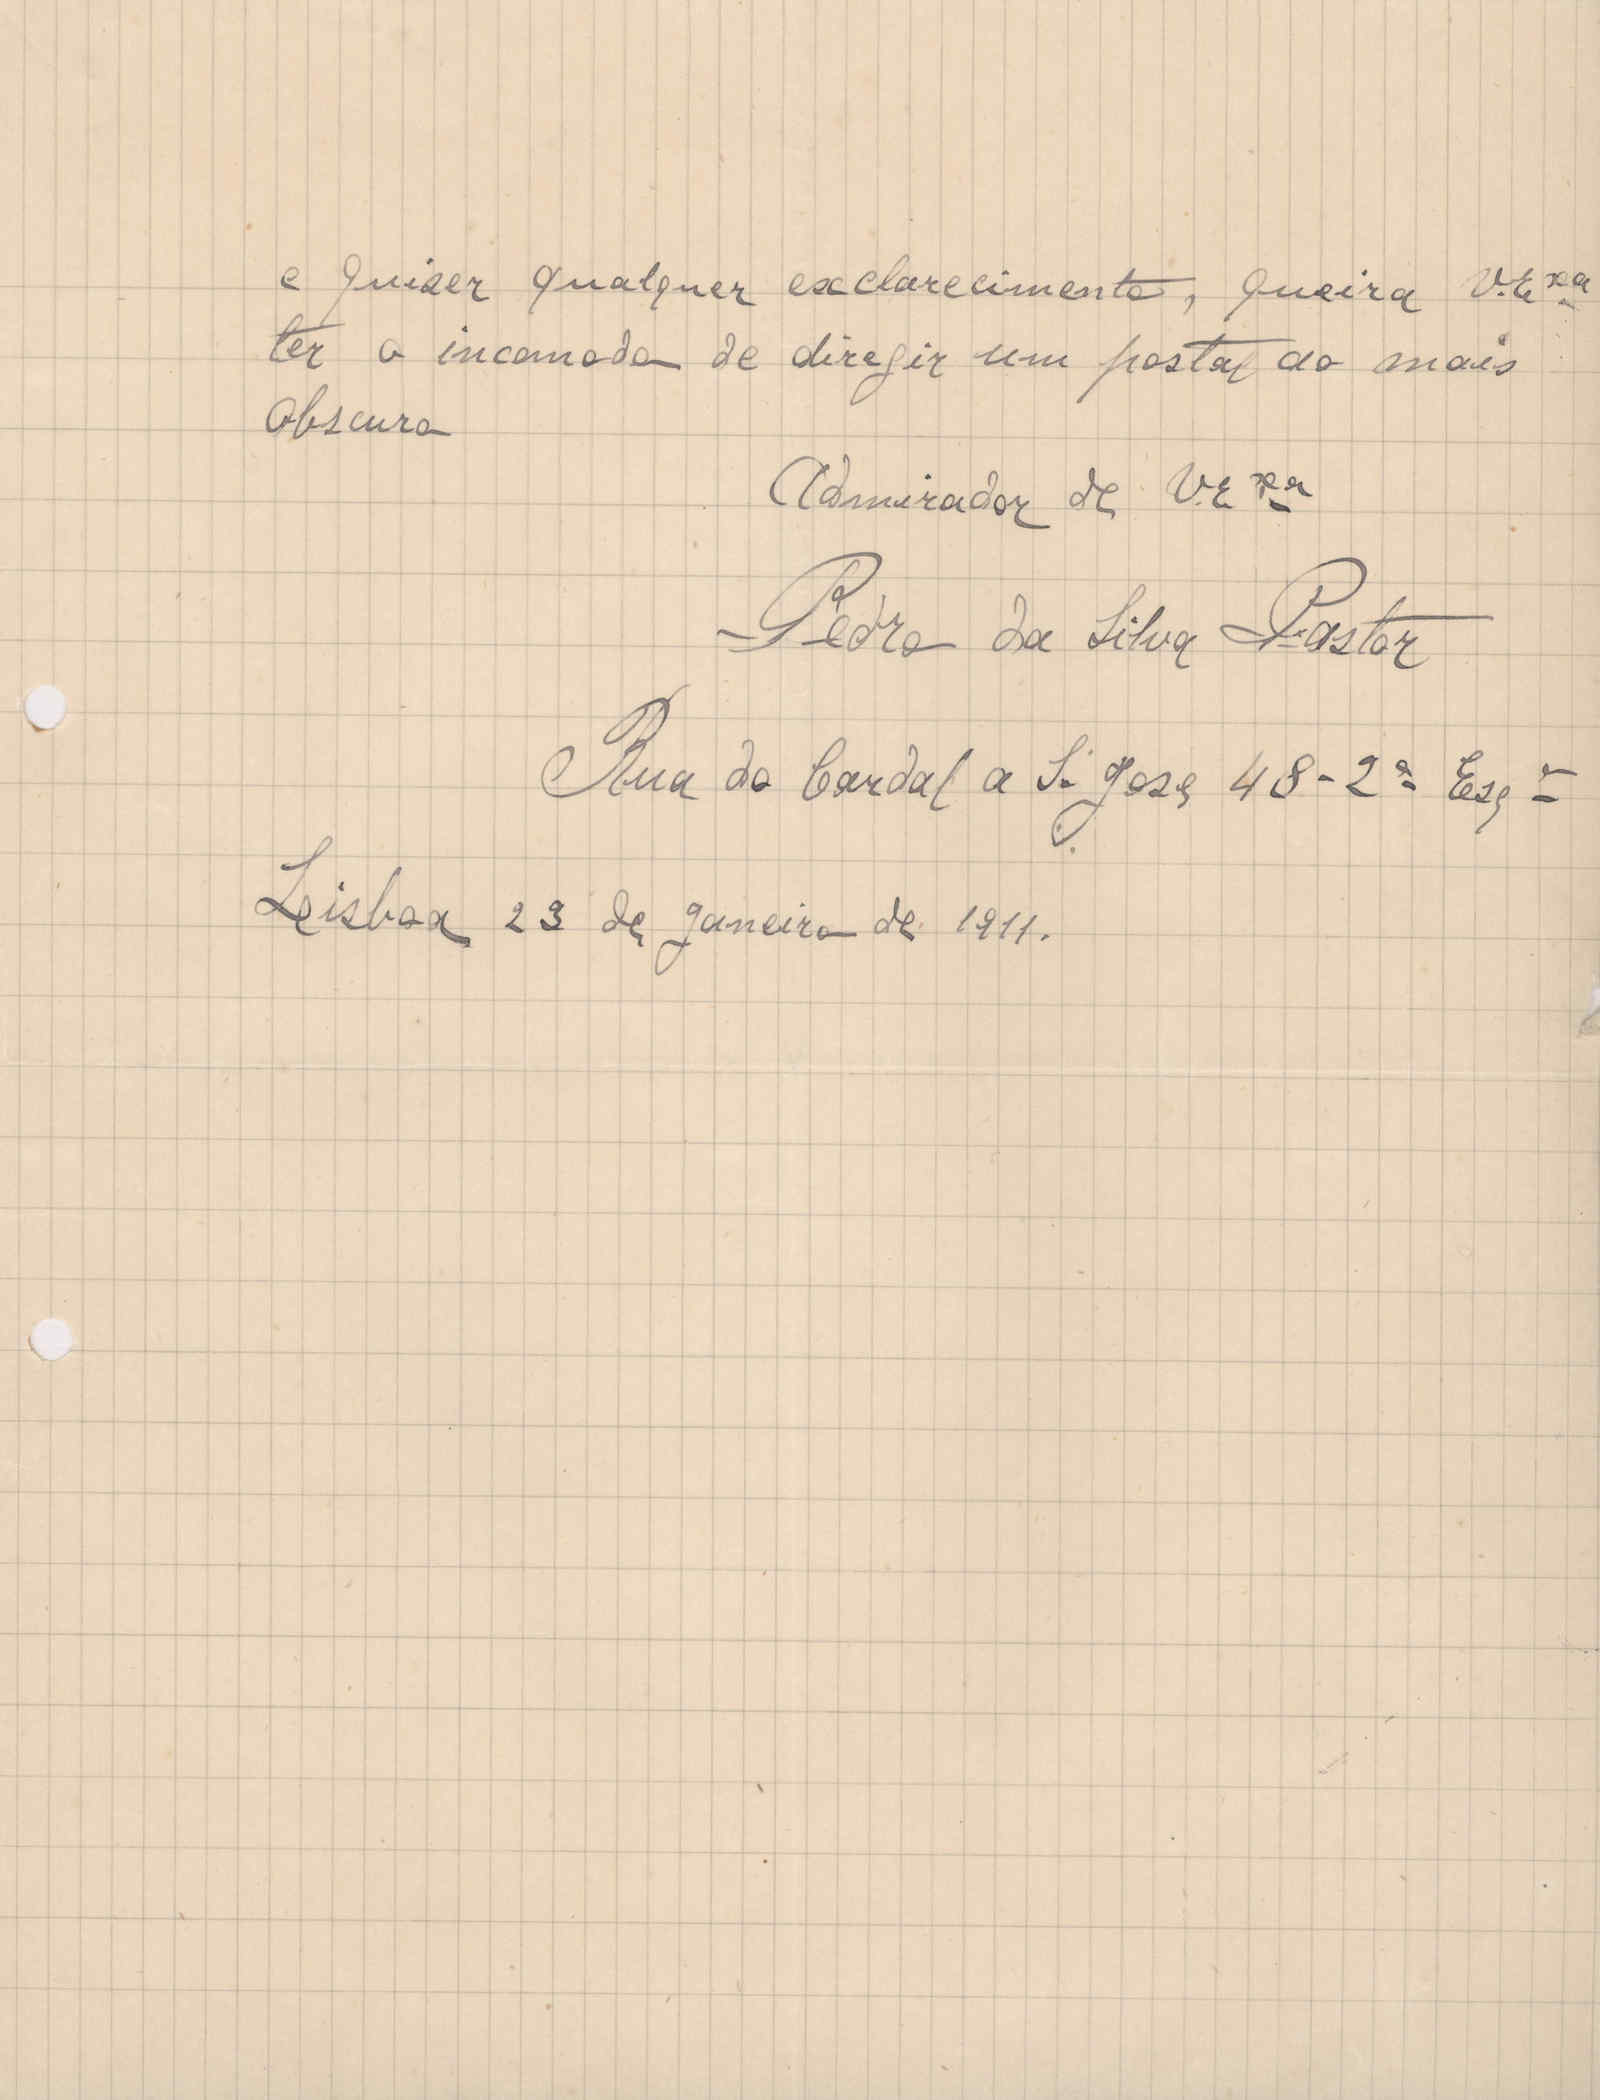 e quizer qualquer exclarecimento, queira V. Exª
ter o incomodo de diregir um postal ao mais
obscuro
Admirador de V. Exª
Pedro da Silva Pastor
Rua do Cardal a S. José 48-2º Esqº
Lisboa 23 de Janeiro de 1911.